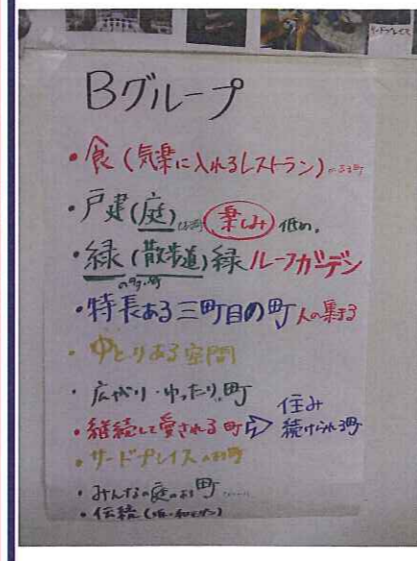 サードプレイス
Bグループ
・食(気楽に入れるレストラン)のある町
・戸建(庭) 楽しみ 低め。
・緑(散歩道)緑ルーフガーデン
のある町
・特長ある三町目の町 人の集まる
・ゆとりある空間
・広がり・ゆったり町
・継続して愛される町⇨ 住み
続けられる町
・サードプレイスのある町
・みんなの庭のある町……
・伝統(